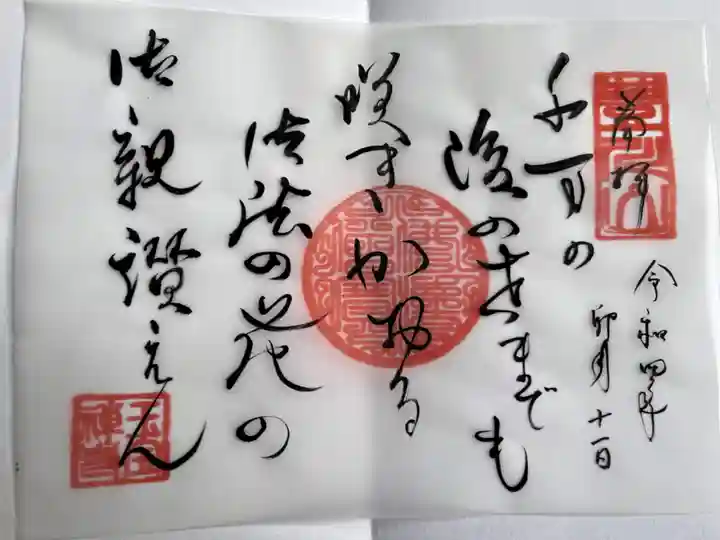 奉拝
令和四年
卯月十一日
千百の
後の世までも
咲きかおる
法法の花の
御親讃えん